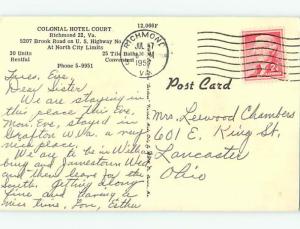 COLONIAL HOTEL COURT
Richmond 22, Va.
5207 Brook Road on U. S. Highway No.
At North City Limits
30 Units
25 Tile Baths
Restful
Convenient
Phone 5-9951
12,066F
RICHMOND
1957
VA.
Post Card
Tues. Eve
Dear Sister
We are staying in
this place this Eve.
Mon. Eve, stayed in
Grafton W. Va. a very
nice place.
We are to be in William
burg and Jamestown Wed
and then leave for the
South. Getting along
fine and having a
nice time, Love, Esther
Mrs. Leewood Chambers
601 E. King St,
Lancaster
Ohio